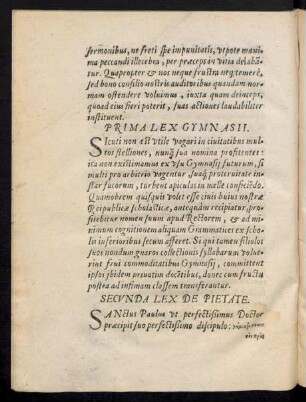 sermonibus, ne freti spe impunitatis, vtpote maxi-
ma peccandi illecebra, per præceps in vitia delabã-
tur. Quapropter & nos neque frustra neq; temerè,
sed bono consilio nostris auditoribus quandam nor-
mam ostendere voluimus, iuxta quam deinceps,
quoad eius fieri poterit, suas actiones laudabiliter
instituent.
PRIMA LEX GYMNASII.
Sicuti non est vtile vagari in ciuitatibus mul-
tos stelliones, nunq̃ sua nomina profitentes: i-
ta non existimamus ex vsu Gymnasij futurum, si
multi pro arbitrio vagentur, suaq́; proteruitate in-
star fucorum, turbent apiculas in melle conficiẽdo.
Quamobrem quisquis volet esse ciuis huius nostræ
Reipublicæ scholasticæ, antequàm recipiatur, pro-
fitebitur nomen suum apud Rectorem, & ad mi-
nimum cognitionem aliquam Grammatices ex scho-
lis inferioribus secum afferet. Si qui tamen filiolos
suos nondum gnaros collectionis syllabarum volue-
rint frui commoditatibus Gymnasij, committent
ipsos ibidem priuatim docẽtibus, donec cum fructu
postea ad infimam classem transferantur.
SECVNDA LEX DE PIETATE.
SANctus Paulus vt perfectissimus Doctor
præcipit suo perfectissimo discipulo: